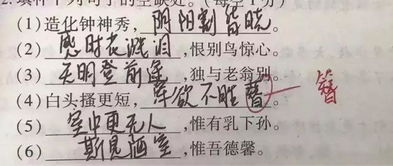 2.填补下列句子的空缺处。(每空1分)
(1)造化钟神秀,阴阳割昏晓。
(2)感时花溅泪,恨别鸟惊心。
(3)天明登前途,独与老翁别。
(4)白头搔更短,浑欲不胜簪。 簪
(5)室中更无人,惟有乳下孙。
(6)斯是陋室,惟吾德馨。